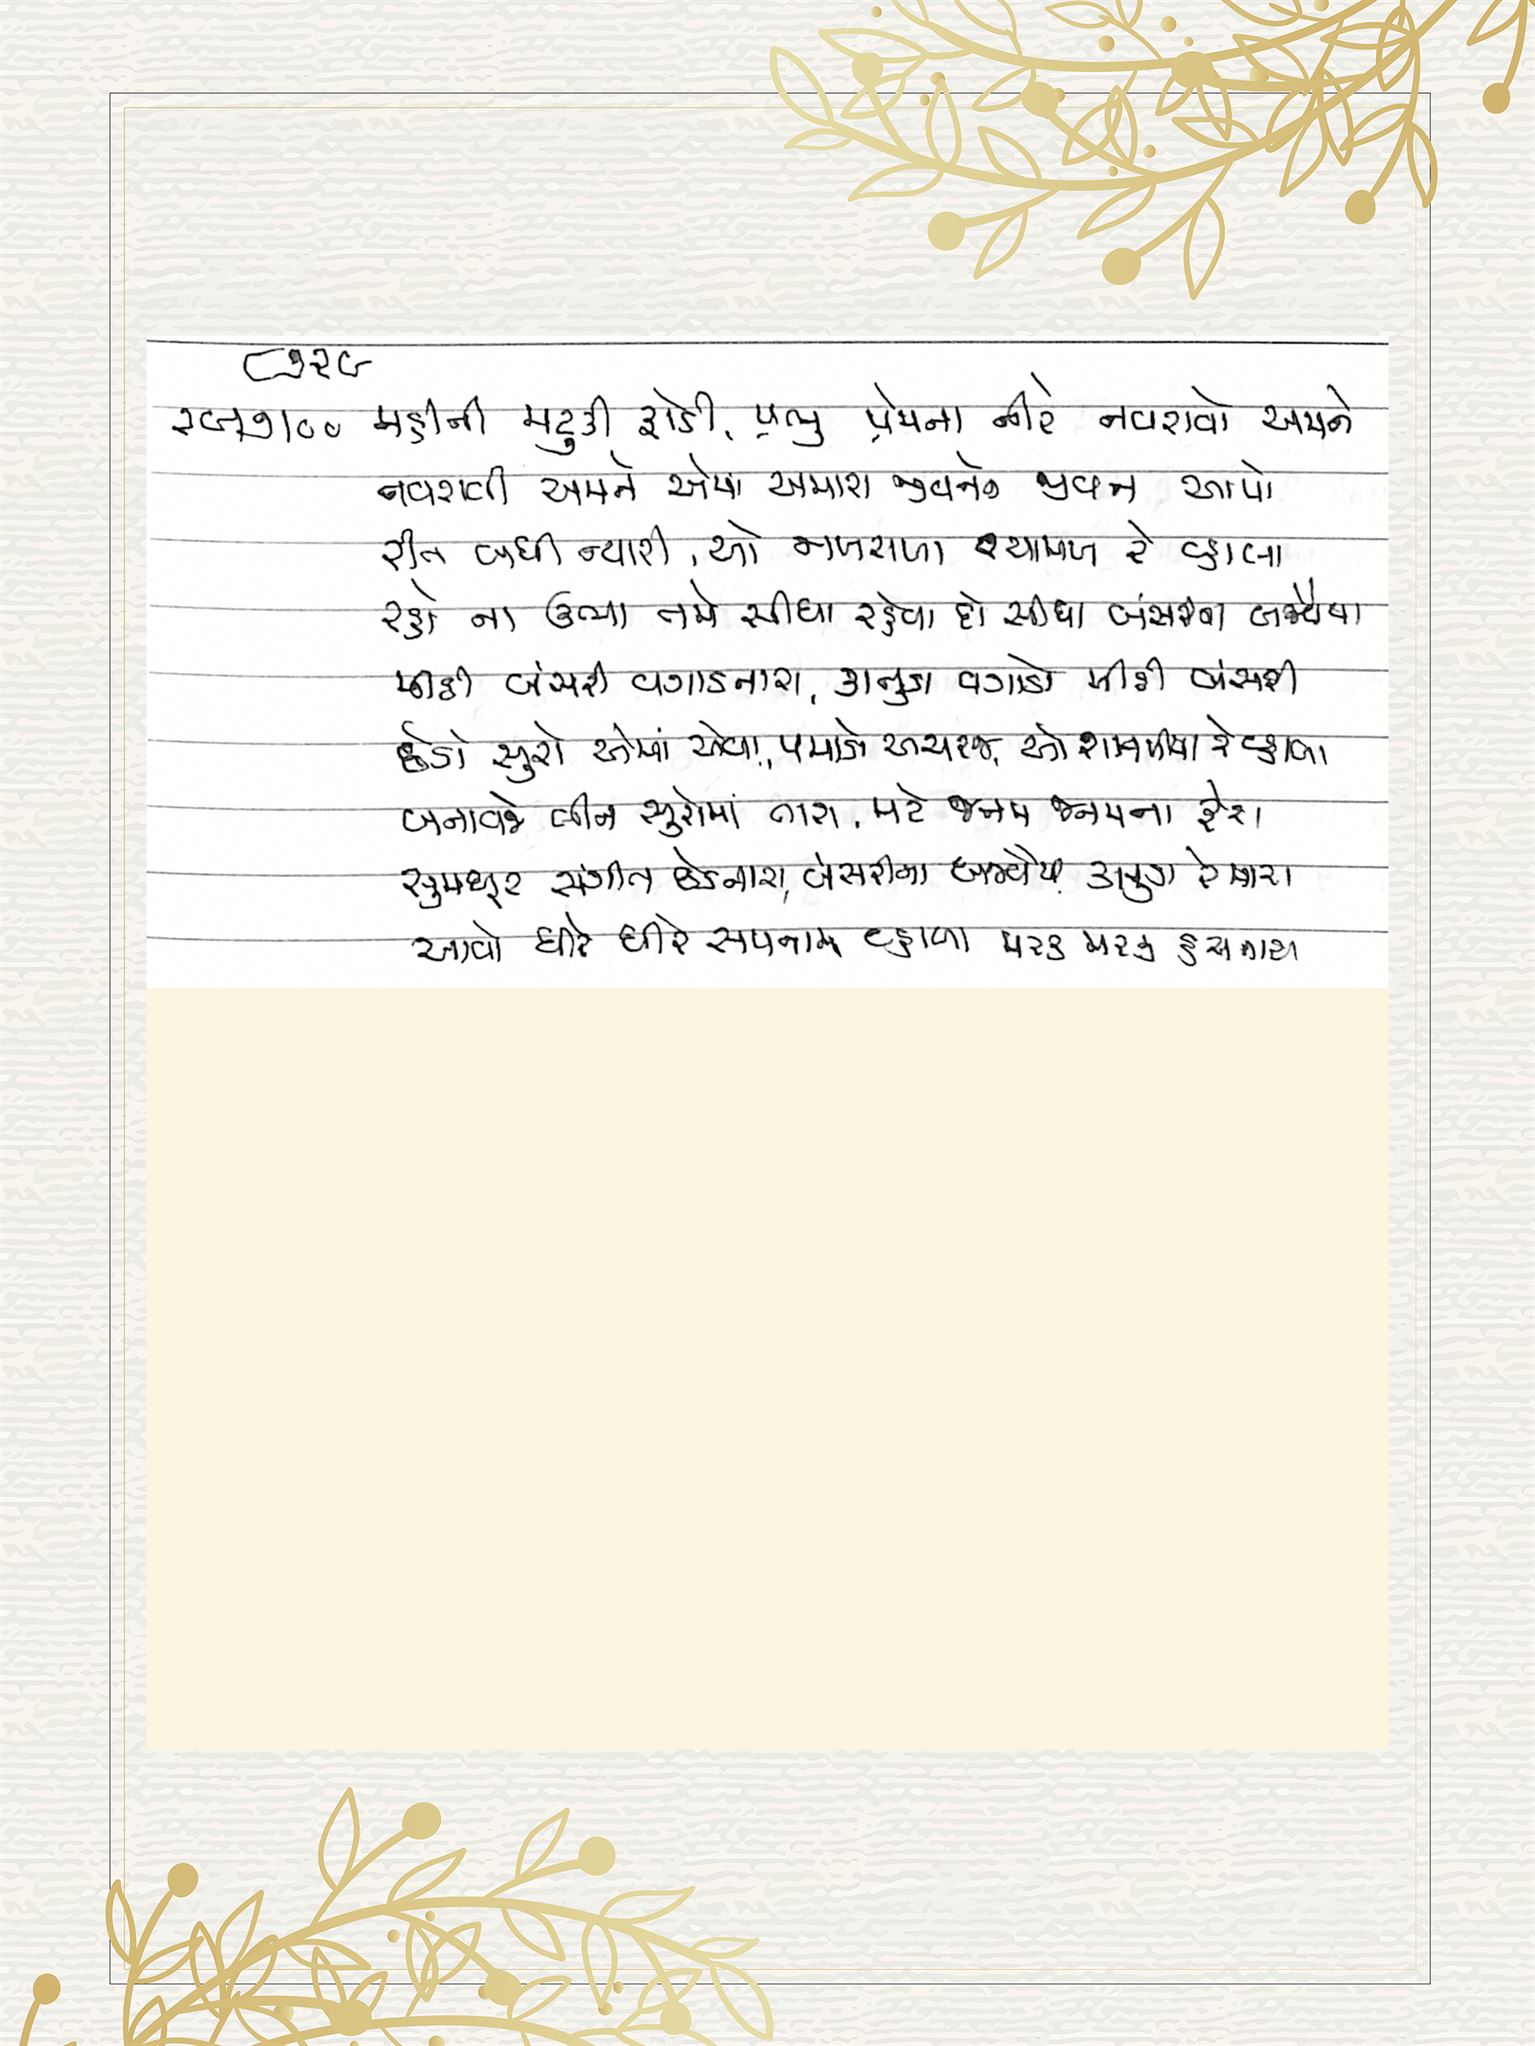 ૮૭૨૯
મહીની મટુકી ફોડી, પ્રભુ પ્રેમના નીરે નવરાવો અમને
નવરાવી અમને એમાં અમારા જીવનને જીવન આપો
રીત બધી ન્યારી, ઓ નજરાળા શ્યામળ રે વ્હાલા
રહો ના ઉભા તમે સીધા રહેવા દો સીધા બંસરીના બજવૈયા
મીઠી બંસરી વગાડનારા, કાનુડા વગાડો મીઠી બંસરી
છેડો સુરો એમાં એવા, પમાડે અચરજ, ઓ શામળીયા રે વ્હાલા
બનાવજે લીન સુરોમાં તારા, મટે જનમ જનમના ફેરા
સુમધુર સંગીત છેડનારા, બંસરીના બજવૈયા કાનુડા રે મારા
આવો ધીરે ધીરે સપનામાં વ્હાલા મરક મરક હસનારા